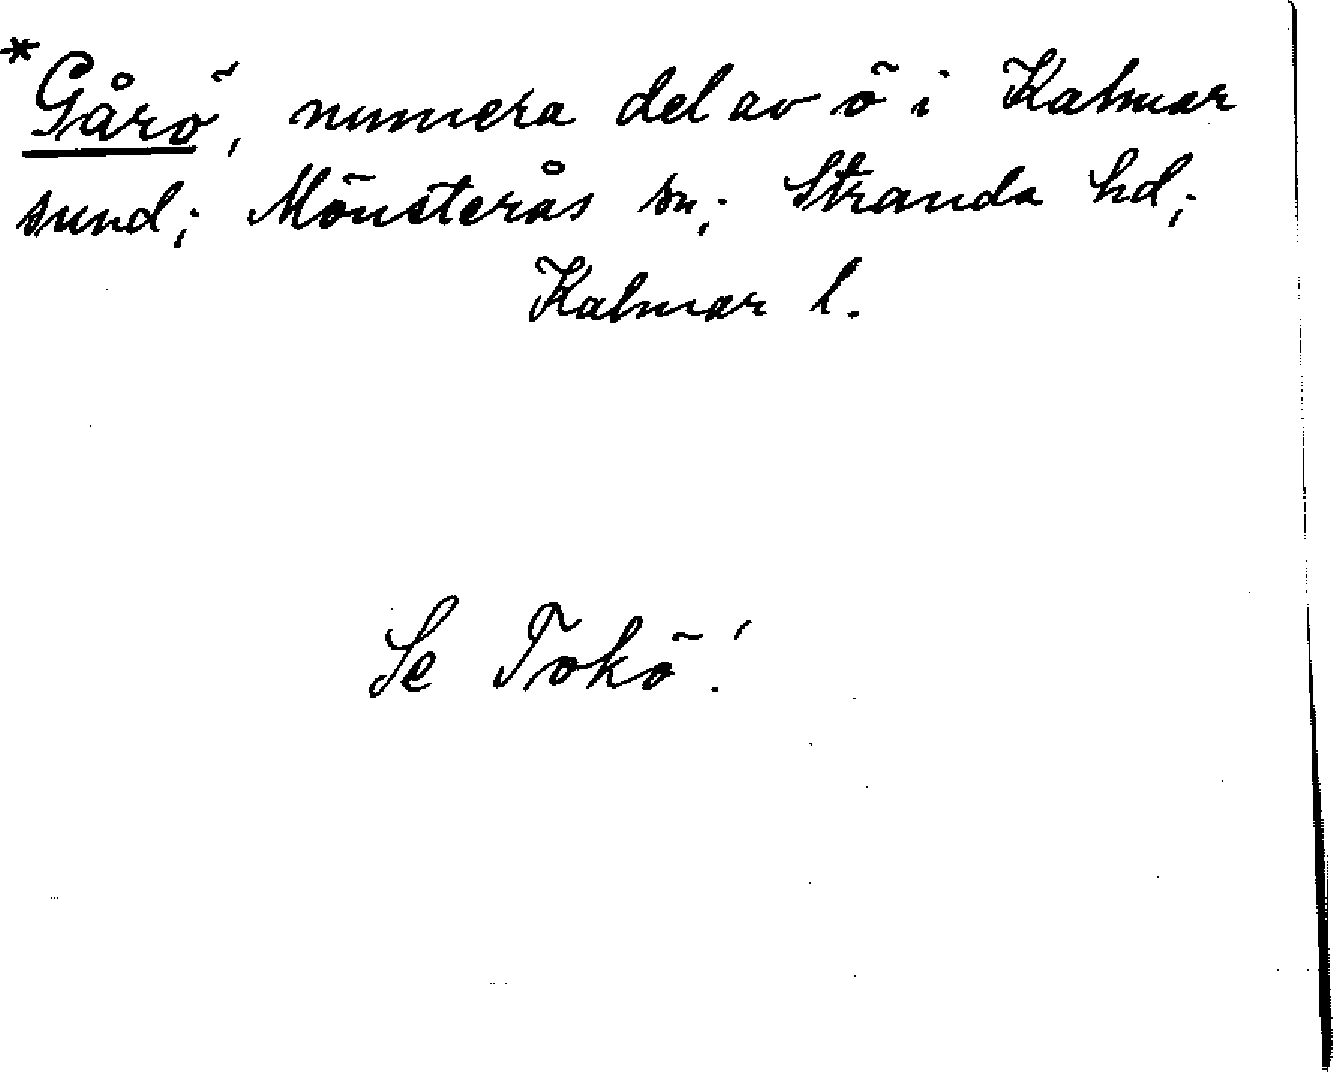 *Gårö, numera del av ö i Kalmar
sund; Mönsterås sn; Stranda hd;
Kalmar l.
Se Tokö!